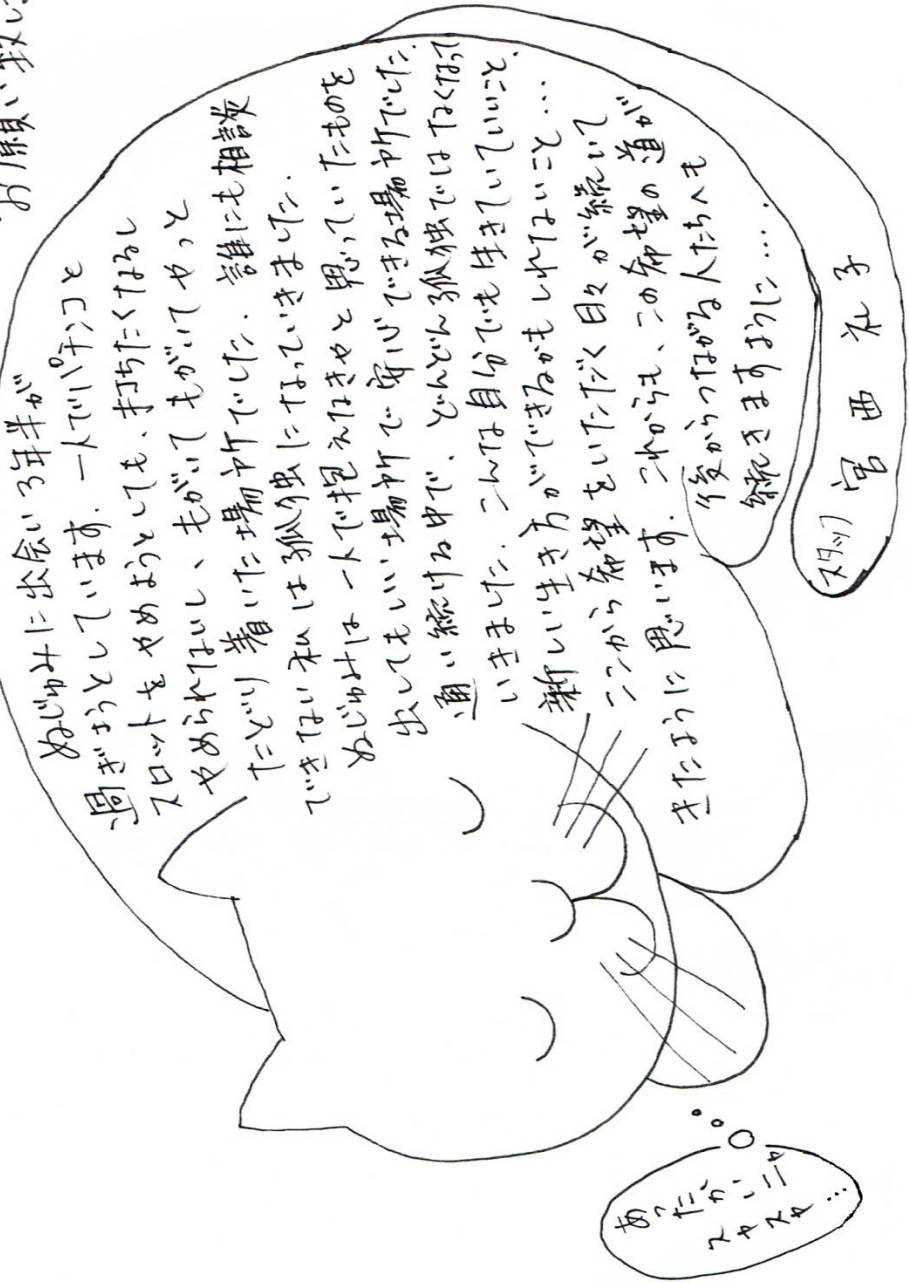 お願い致し
ぬじゅみに出会い3年半が
過ぎようとしています。一人でパチンコと
スロットをやめようとしても、打ちたくなるし
やめられないし、もがいてもがいてやっと
たどり着いた場所でした。誰にも相談
できない私は孤独になっていきました。
ぬじゅみは一人で抱えなきゃと思っていたものを
出してもいい場所で安心できる場所でした。
通い続ける中で、どんどん孤独ではなくなって
いきました。こんな自分でも生きていていいこと、
新しい生き方ができるかもしれないこと…
ここから希望をいただく日々が続いて
きたように思います これからも、この希望の道が
後からつながる人たちへも
続きますように…
スタッフ 宮西 礼子
あったかいニャ
スヤスヤ…